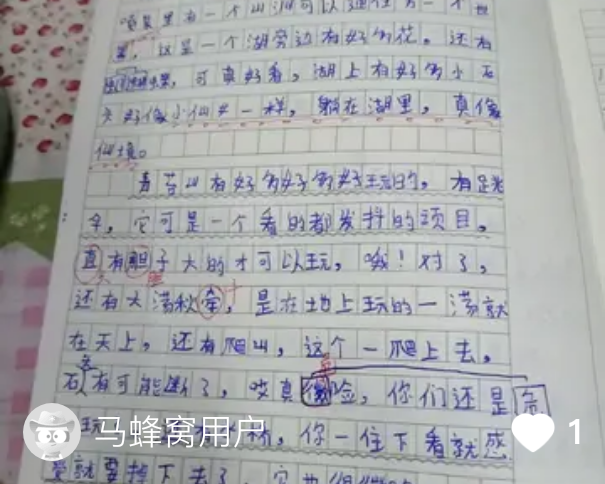 喷泉里有一个山洞可以通往另一个世
界，这是一个湖旁边有好多花。还有
蝴蝶，可真好看，湖上有好多小石
头好像小仙女一样，躺在湖里，真像
仙境。
青苔山有好多好多好玩的。有跳
伞，它可是一个看的都发抖的项目。
直有胆子大的才可以玩，哦！对了，
还有大荡秋牵，是在地上玩的一荡就
在天上，还有爬山，这个一爬上去，
石头有可能断了，哎真险，你们还是
玩，你一往下看就感
觉就要掉下去了，它也
马蜂窝用户
1